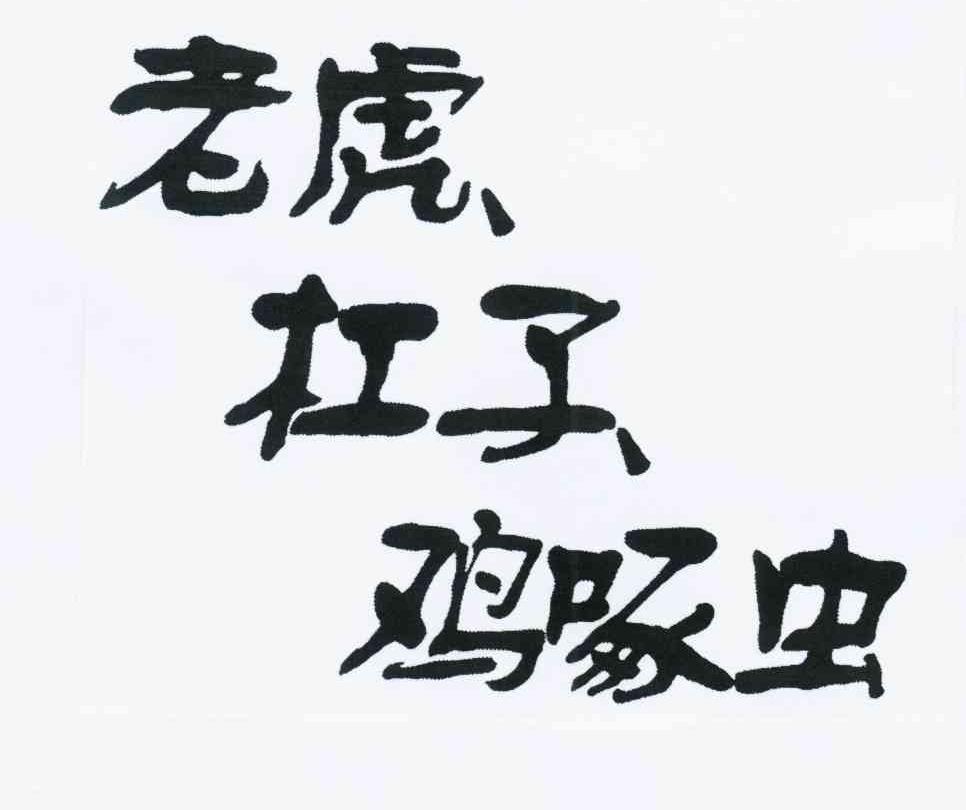 老虎、
杠子、
鸡啄虫